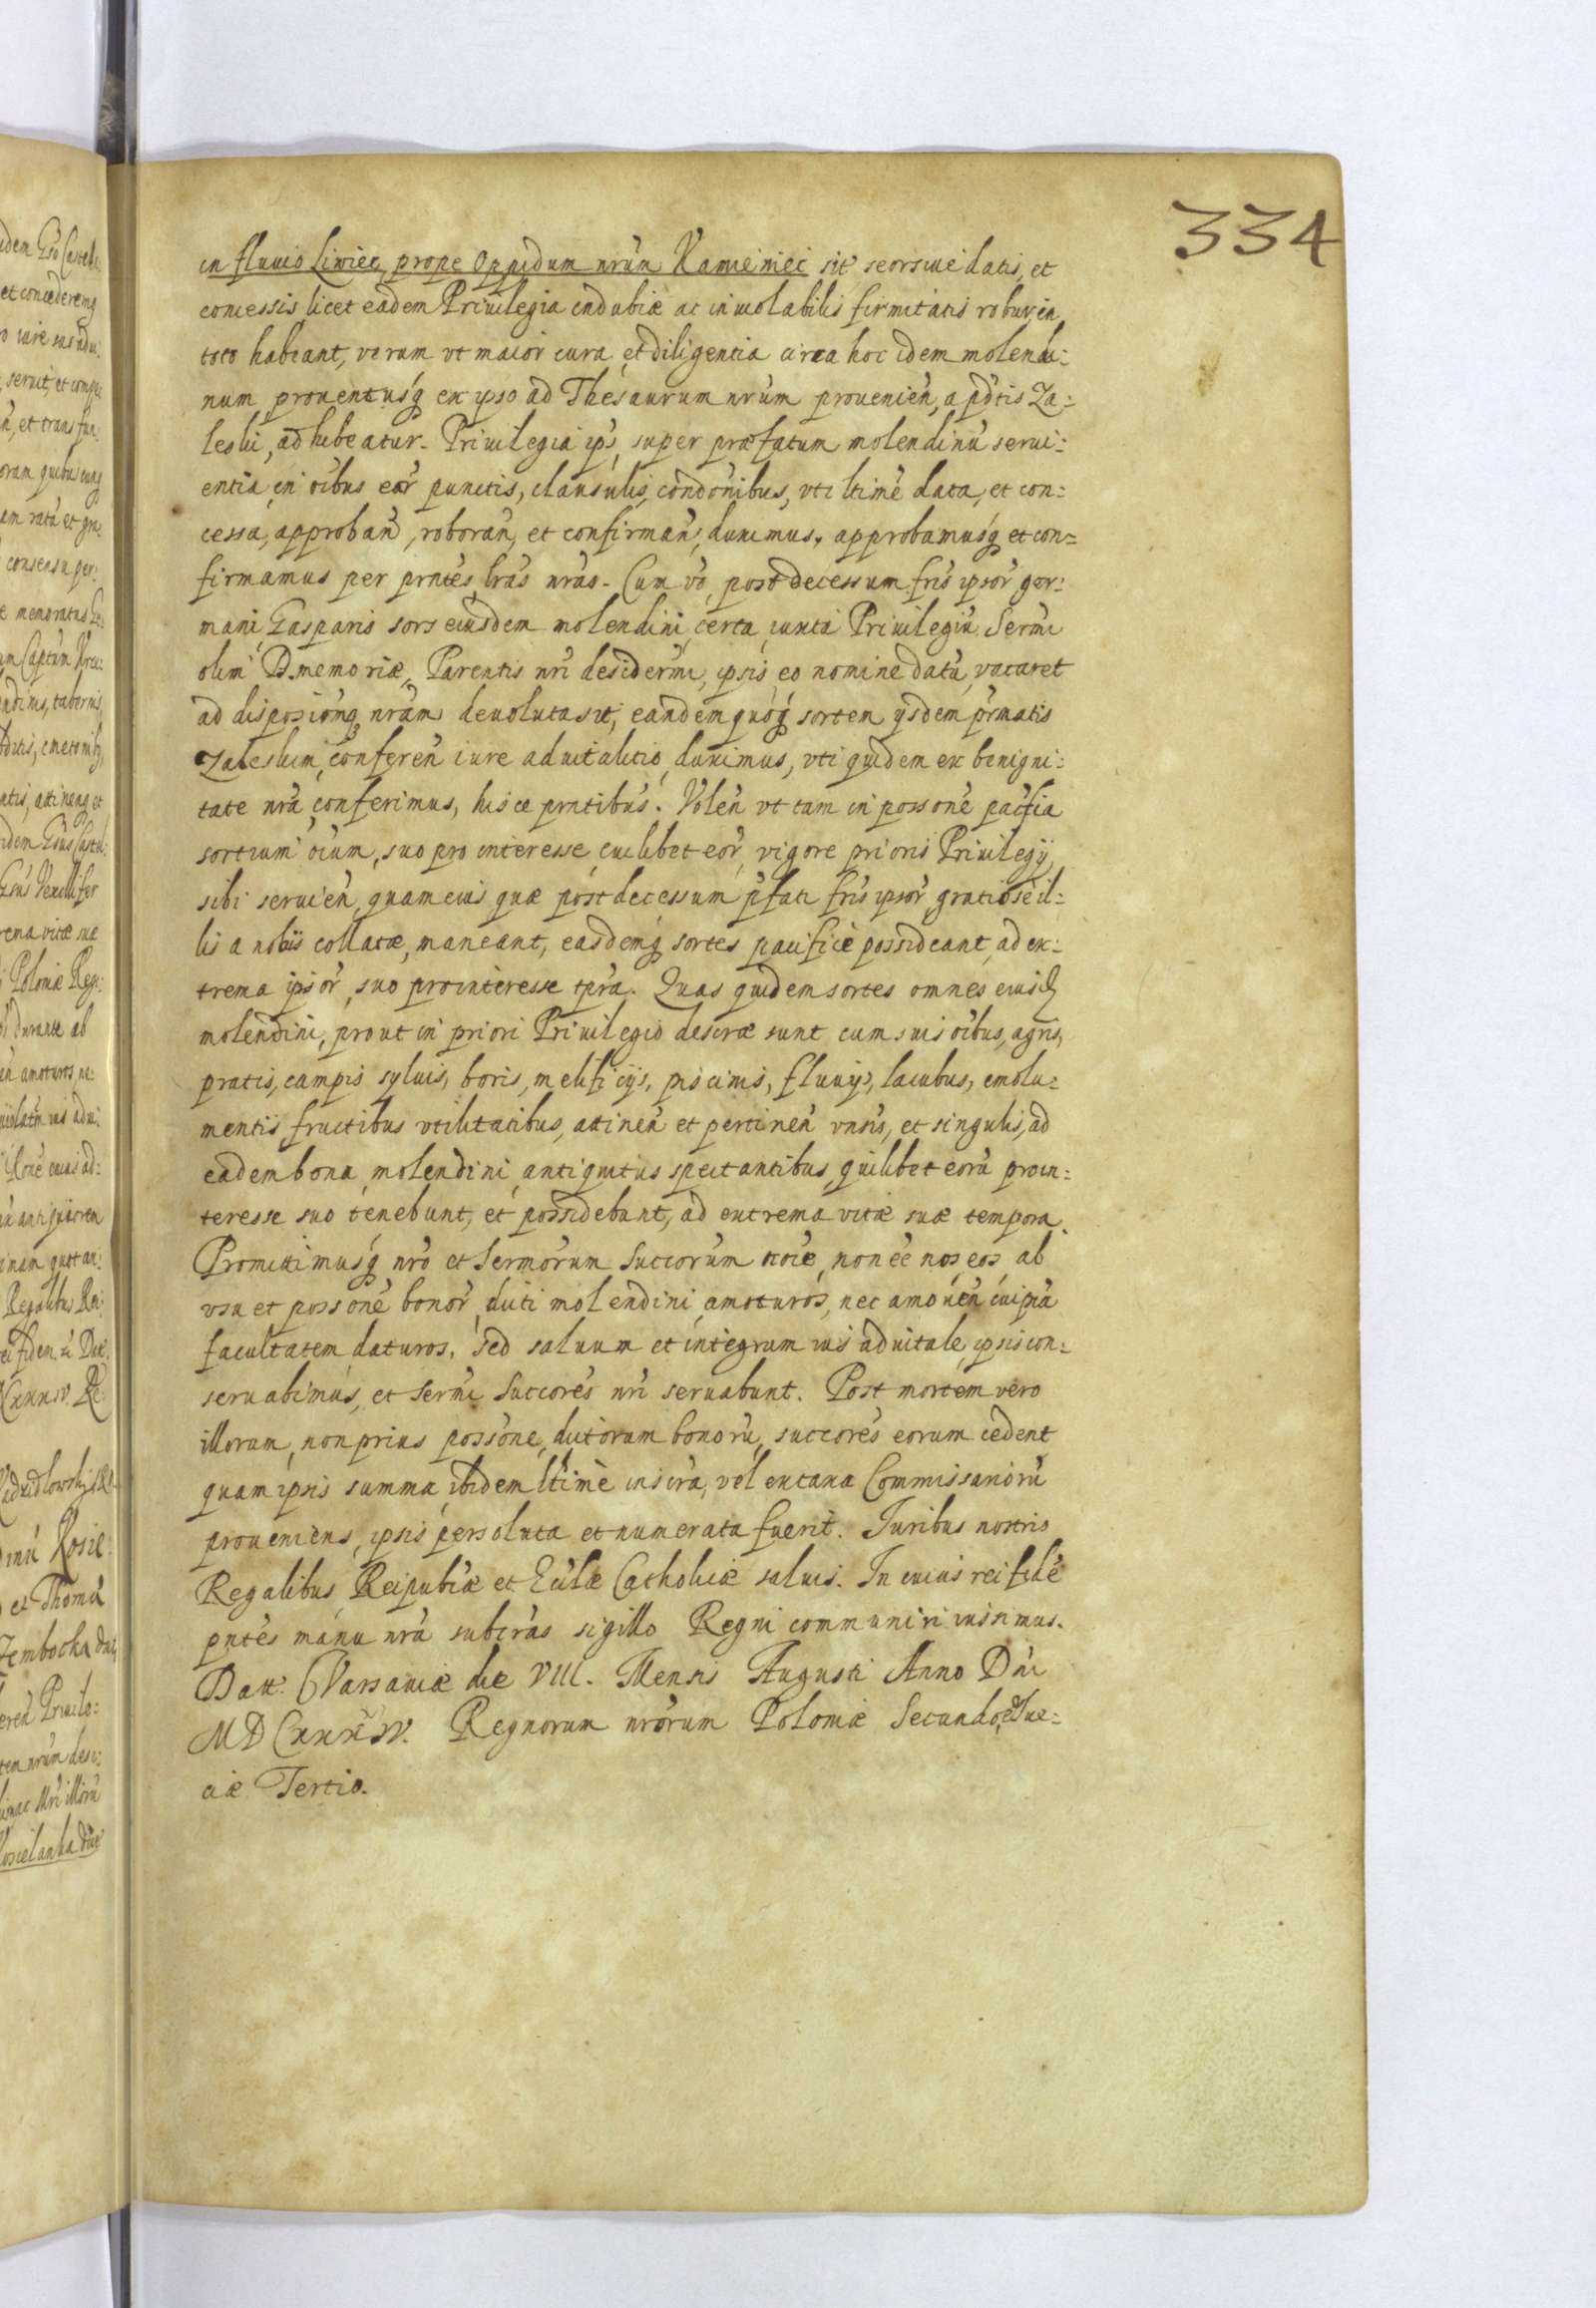 334
in fluvio Liwiec, prope Oppidum nrũm Kamieniec sit seorsiue datis, et
concessis licet eadem Priuilegia indubiæ ac inuiolabilis firmitatis robur in
toto habeant, verum vt maior cura, et diligentia circa hoc idem molendi:
num prouentusq́ ex ipso ad Thesaurum nrũm prouenień, a pd̃tis Za:
leski, adhibeatur. Priuilegia ips̃, super præfatum molendinũ serui:
entia, in oĩbus eor̃ punctis, clausulis, condõnibus, vti ltimẽ data, et con:
cessa, approbañ, roborañ, et confirmañ, duximus, approbamusq́ et con=
firmamus per prñtes lrãs nrãs. Cum võ, post decessum fr̃is ipsor̃ ger:
mani Gasparis sors eiusdem molendini certa iuxta Priuilegiũ Serm̃i
olim D. memoriæ, Parentis nrĩ desiderm̃i, ipsis eo nomine datũ, vacaret
ad disposionq́ nrãm deuoluta sit, eandem quoq́ sortem ijsdem prñatis
Zaleskim, conferẽn iure aduitalitio, duximus, vti quidem ex benigni:
tate nrã conferimus, hisce prñtibus. Volẽn vt tam in possõne pacifica
sortium oĩum, suo pro interesse, cuilibet eor̃, vigore prioris Priuilegij
sibi seruiẽn, quam eius quæ post decessum pfati fr̃is ipsor̃, gratiosè il:
lis a nobis collatæ, maneant, easdemq́ sortes pacificè possideant, ad ex:
trema ipsor̃, suo prointeresse tp̃ra. Quas quidem sortes omnes eiusd̃
molendini, prout in priori Priuilegio descræ sunt cum suis oĩbus, agris,
pratis, campis syluis, boris, mellificijs, piscinis, fluuijs, lacubus, emolu:
mentis fructibus vtilitatibus, attineñ et pertineñ vnsĩs, et singulis, ad
eadem bona, molendini, antiquitus spectantibus, quilibet eorũ proin:
teresse suo tenebunt, et possidebunt, ad extrema vitæ suæ tempora.
Promittimusq́ nrõ et Sermõrum Succorũm noĩe, non eẽ nos, eos ab
vsu et possonẽ bonor̃, dicti molendini, amoturos, nec amouẽn cuipiã
facultatem daturos, sed saluum et integrum ius aduitale, ipsis con:
seruabimus, et Serm̃i Succorẽs nrĩ seruabunt. Post mortem vero
illorum, non prius possõne, dictorum bonorũ, succorẽs eorum cedent
quam ipsis summa, ibidem ltimè inscra, vel ex taxa Commissariorũ
proueniens, ipsis persoluta et numerata fuerit. Iuribus nostris
Regalibus Reipublæ et Ecclæ Catholicæ saluis. In cuius rei fidẽ
pntẽs manu nrã subcrãs sigillo Regni communiri iussimus.
Datt. Varsauiæ die VIII. Mensis Augusti Anno Dñi
MDCXXXIV. Regnorum nrõrum Poloniæ Secundo, Sue:
ciæ Tertio.